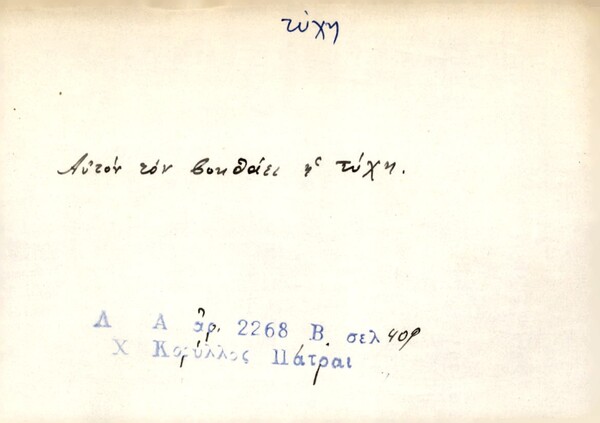 τύχη
Αὐτόν τόν βοηθάει ἡ τύχη.
Λ Α ἀρ. 2268 Β. σελ 409
Χ Κορύλλος Πάτραι